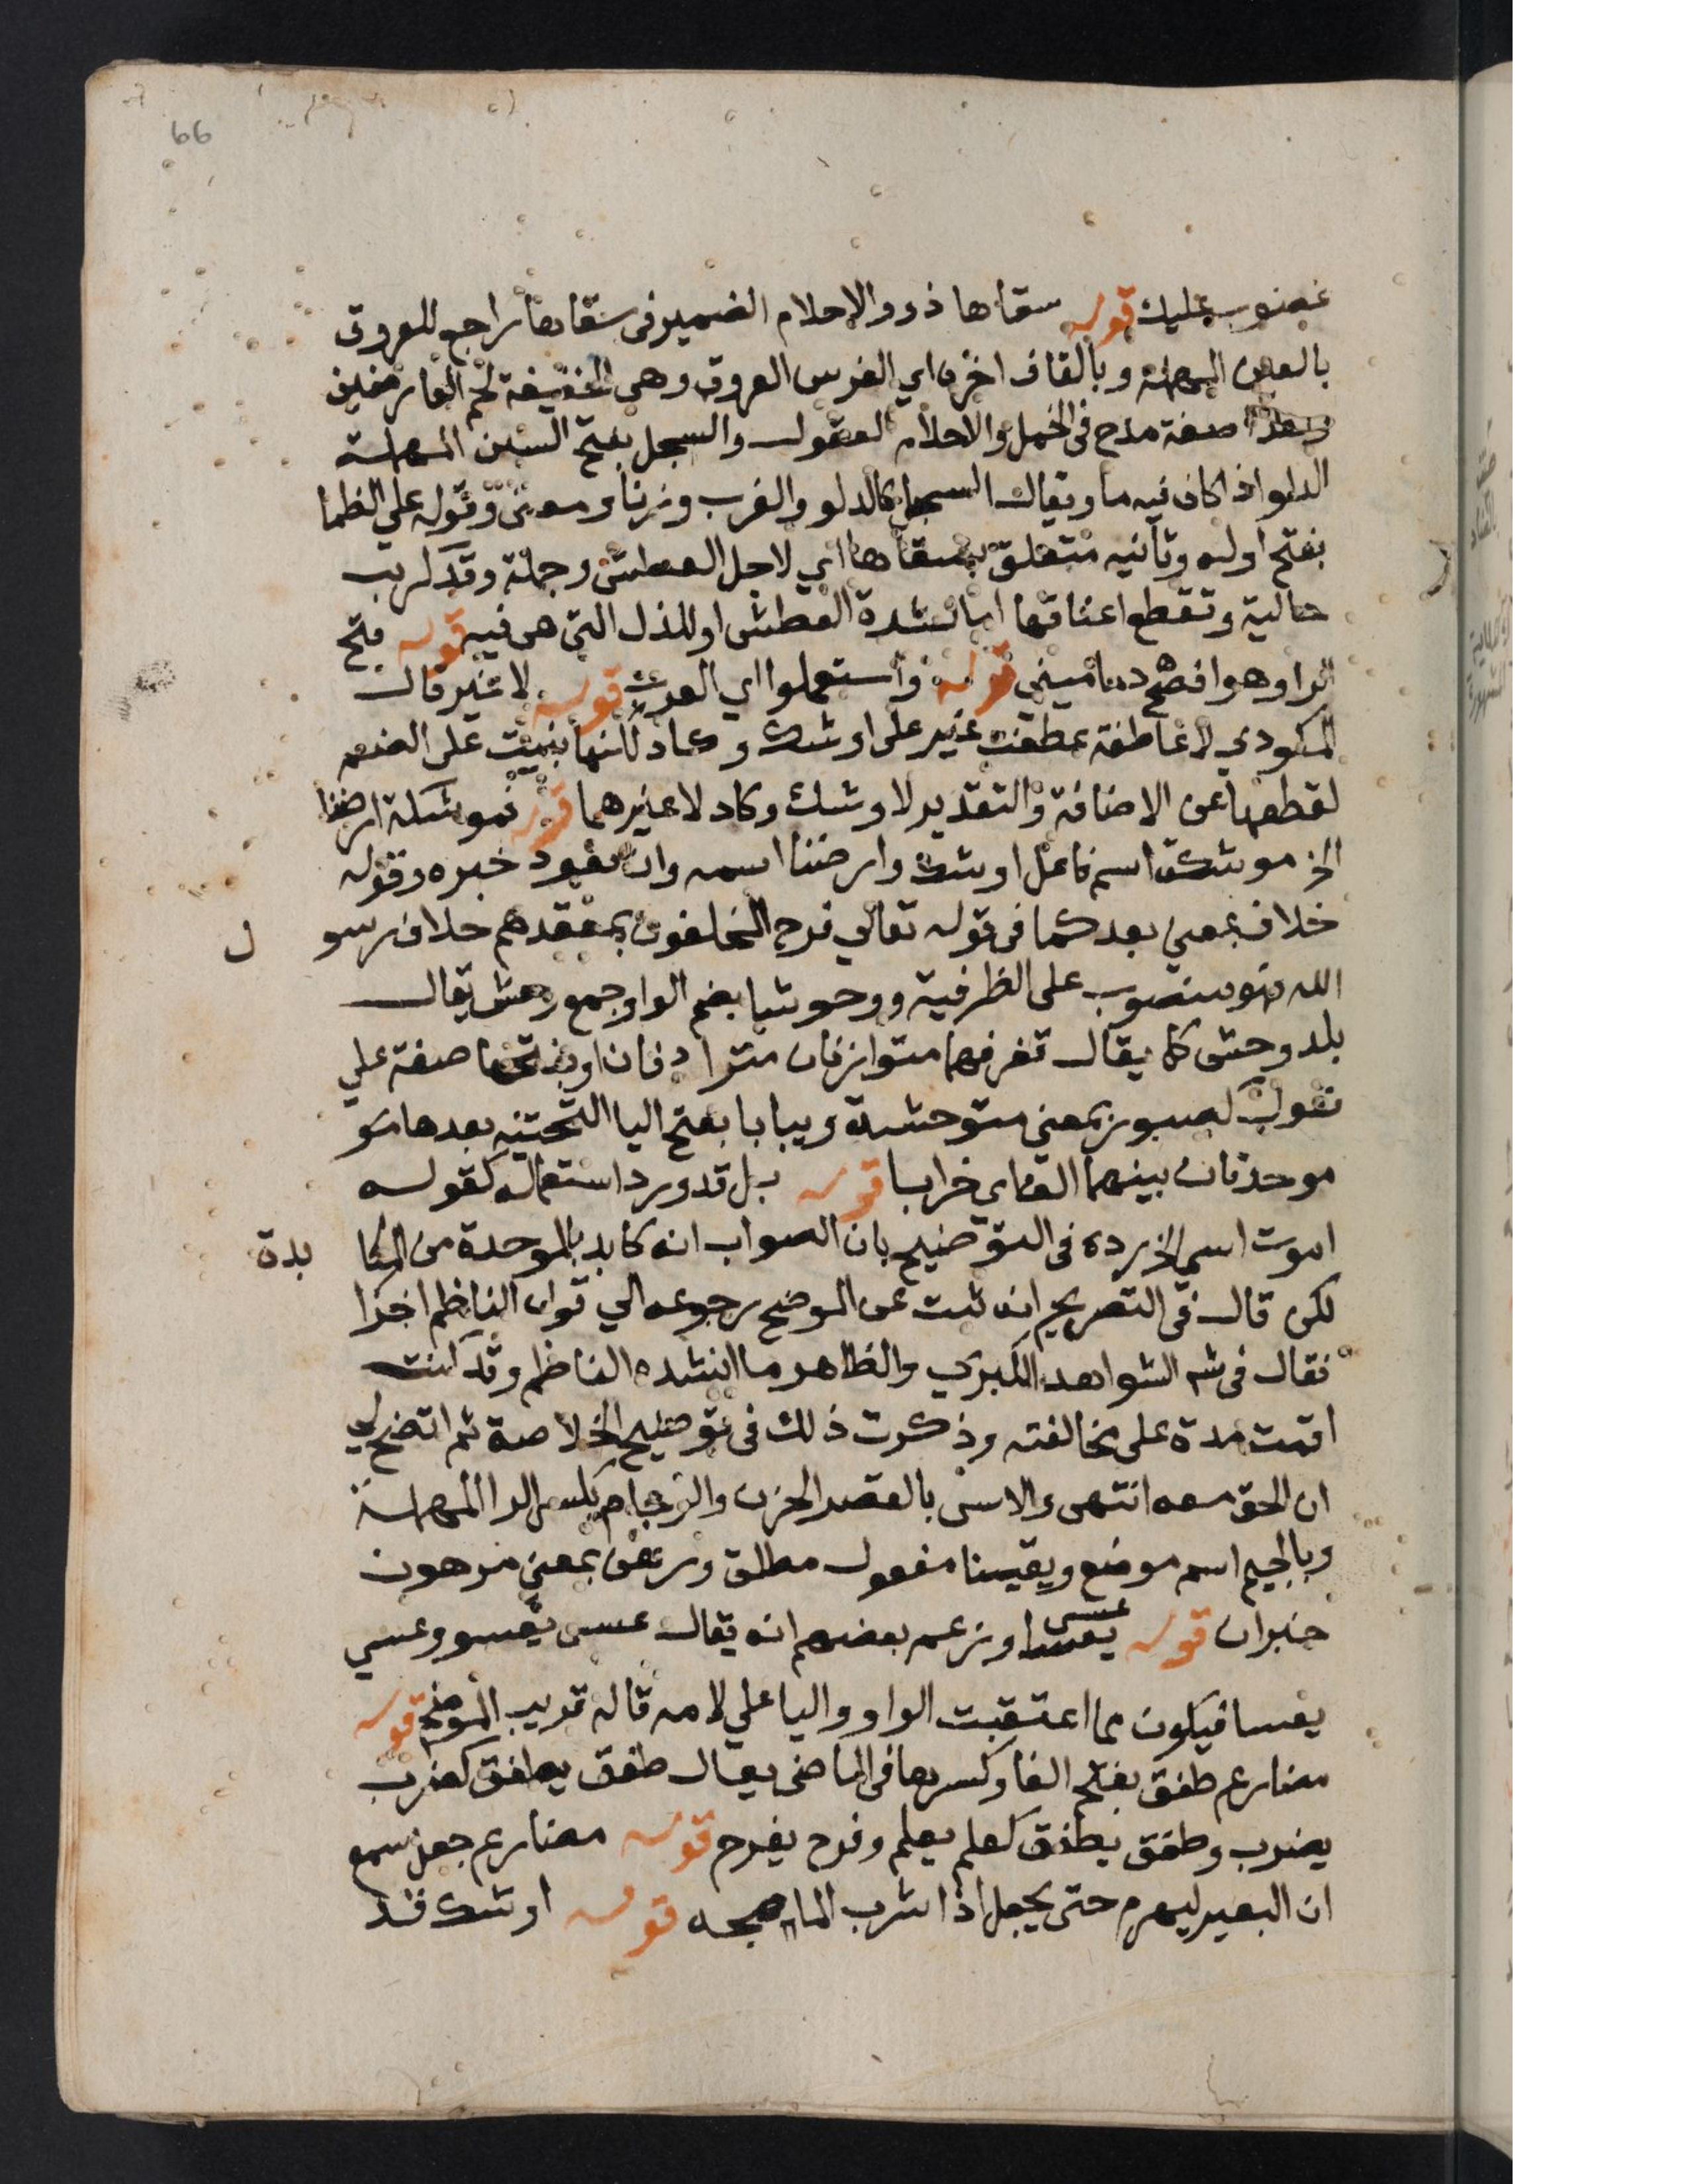 66
غضوب عليك قوله سقاها ذوو الاحلام الضمير فى سقاها راجع للعروق
بالعين المهملة وبالقاف اخره اي الفرس العروق وهى الخفيفة لحم العارضين
وهذا صفة مدح فى الخيل والاحلام العقول والسجل بفتح السين المهملة
الدلو اذا كان فيه ما ويقال السجل كالدلو والغرب وزنا ومعنى وقوله على الظما
بفتح اوله وثانيه متعلق بسقاها اي لاجل العطش وجملة وقد كربت
حالية وتقطع اعناقها اما لشدة العطش او للذل التى هى فيه قوله فتح
الرا وهو افصح دماميني قوله واستعملوا اي العرب قوله لا غير قال
المكودي لا عاطفة عطفت غير على اوشك وكاد لكنها بنيت على الضم
لقطعها عن الاضافة والتقدير لاوشك وكاد لا غيرهما قوله فموشكة ارضنا
الخ موشكة اسم فاعل اوشك وارضنا اسمه وان تعود خبره وقوله
خلاف بمعنى بعد كما فى قوله تعالي فرح المخلفون بمقعدهم خلاف رسو ل
الله فهو منصوب على الظرفية ووحوشا بضم الواو جمع وحش يقال
بلد وحش كما يقال قفر فهما متوازنان مترادفان او بفتحها صفة على
فعول كصبور بمعنى متوحشة ويبابا بفتح اليا التحتية بعدها
موحدتان بينهما الف اي خرابا قوله بل قد ورد استعماله كقوله
اموت اسى الخ رده فى التوضيح بان الصواب انه كابد بالموحدة من المكا بدة
لكن قال فى التصريح انه ثبت عن الموضح رجوعه الي قول الناظم اخرا
فقال فى شرح الشواهد الكبري والظاهر ما انشده الناظم وقد كنت
اقمت مدة على مخالفته وذكرت ذلك فى توضيح الخلاصة ثم اتضح لي
ان الحق معه انتهى والاسى بالقصر الحزن والرجام بكسر الرا المهملة
وبالجيم اسم موضع ويقينا مفعول مطلق ورهن بمعنى مرهون
خبر ان قوله عسى وزعم بعضهم انه يقال عسى يعسو وعسي
يعسا فيكون مما اعتقبت الواو واليا علي لامه قاله قريب الموضح قوله
مضارع طفق بفتح الفا وكسرها فى الماضى يقال طفق يطفق كضرب
يضرب وطفق يطفق كعلم يعلم وفرح يفرح قوله مضارع جعل سمع
ان البعير ليهرم حتى يجعل اذا شرب الما مجه قوله اوشك قد